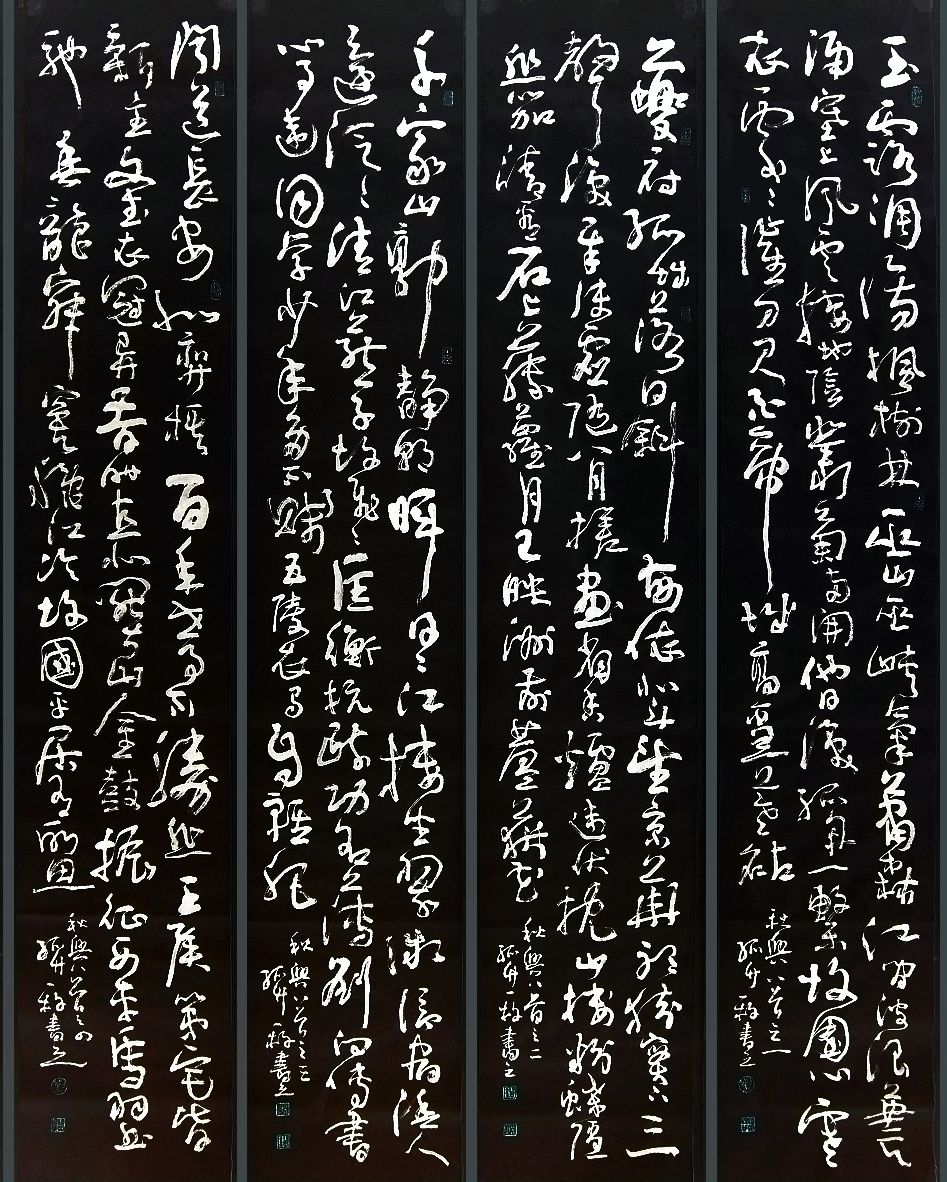 玉露凋傷楓樹林巫山巫峽氣蕭森江間波浪兼天
湧塞上風雲接地陰叢菊兩開他日淚孤舟一繫故園心寒
衣處處催刀尺白帝城高急暮砧
秋興八首之一
夔府孤城落日斜每依北斗望京華聽猿實下三
聲淚奉使虛隨八月槎畫省香爐違伏枕山樓粉堞隱
悲笳請看石上藤蘿月已映洲前蘆荻花
秋興八首之二
千家山郭靜朝暉日日江樓坐翠微信宿漁人
還泛泛清秋燕子故飛飛匡衡抗疏功名薄劉向傳經
心事違同學少年多不賤五陵衣馬自輕肥
秋興八首之三
聞道長安似弈棋百年世事不勝悲王侯第宅皆
新主文武衣冠異昔時直北關山金鼓振征西車馬羽書
馳魚龍寂寞秋江冷故國平居有所思
秋興八首之四